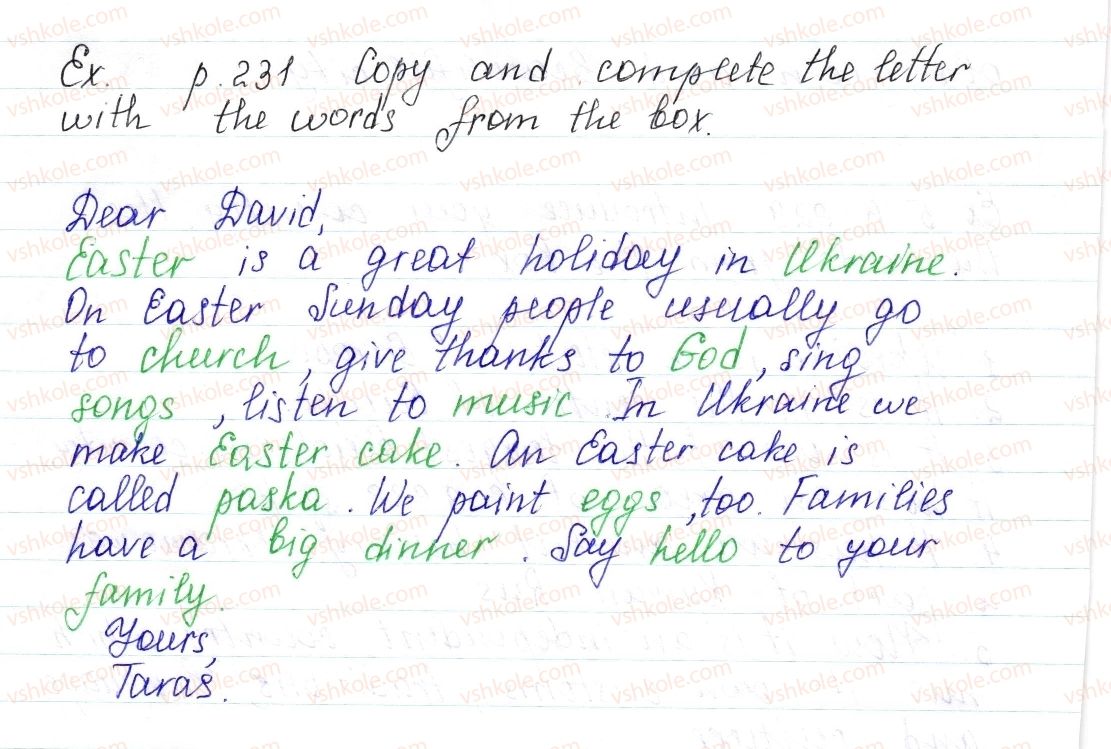 Ex. p.231 Copy and complete the letter
with the words from the box.
Dear David,
Easter is a great holiday in Ukraine.
On Easter Sunday people usually go
to church, give thanks to God, sing
songs, listen to music. In Ukraine we
make Easter cake. An Easter cake is
called paska. We paint eggs, too. Families
have a big dinner. Say hello to your
family.
Yours,
Taras.